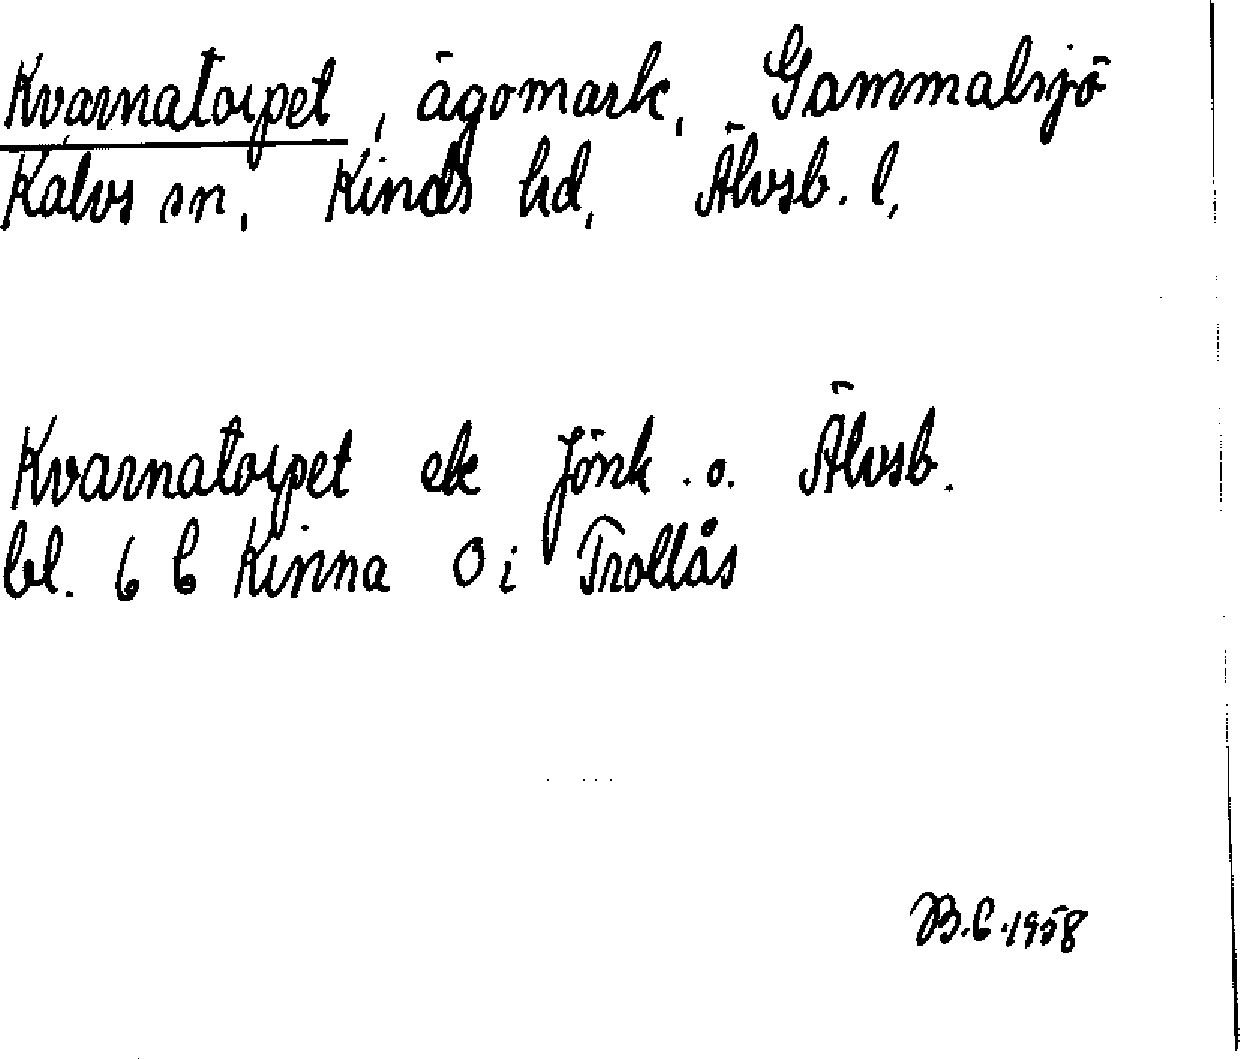 Kvarnatorpet, ägomark, Gammalsjö
Kalvs sn, Kinds hd, Älvsb. l,
Kvarnatorpet ek Jönk. o. Älvsb.
bl. 6 C Kinna O i Trollås
B.C. 1958